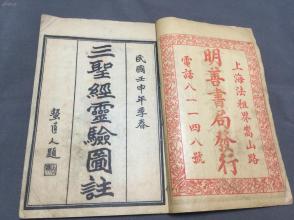 上海法租界嵩山路
明善書局發行
電話八一一四八號
民國壬申年季春
三聖經靈驗圖註
人題